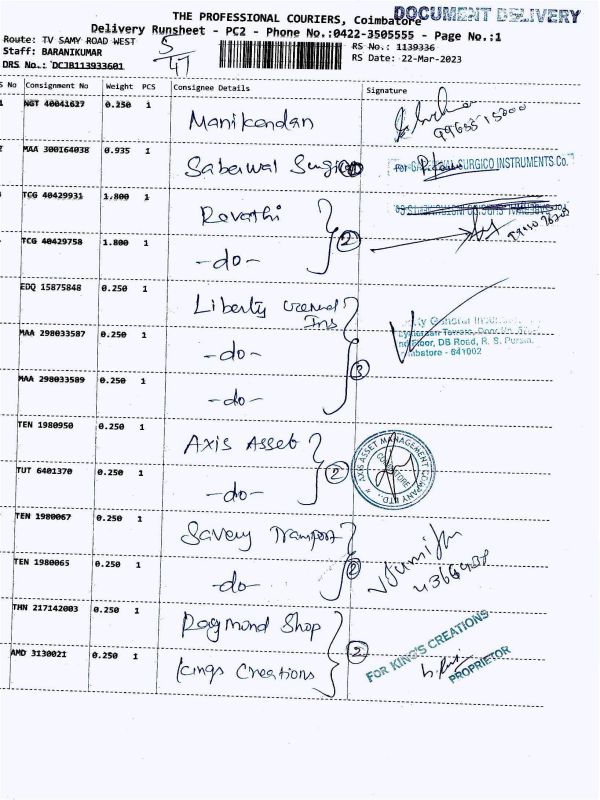 THE PROFESSIONAL COURIERS, Coimbatore
DOCUMENT DELIVERY
Delivery Runsheet - PC2 - Phone No.:0422-3505555 - Page No.:1
Route: TV SAMY ROAD WEST
5/47
RS No.: 1139336
Staff: BARANIKUMAR
RS Date: 22-Mar-2023
DRS No.: DCJB113933601
S No Consignment No Weight PCS Consignee Details Signature
1 NGT 40041627 0.250 1 Manikandan
MAA 300164038 0.935 1 Saberwal
SURGICO INSTRUMENTS Co.
TCG 40429931 1.800 1 Revathi
2
TCG 40429758 1.800 1 -do-
EDQ 15875848 0.250 1 Liberty General Ins
MAA 298033587 0.250 1 -do-
nd Floor, DB Road, R. S. Puram,
mbatore - 641002
3
MAA 298033589 0.250 1 -do-
TEN 1980950 0.250 1 Axis Asset
2
AXIS ASSET MANAGEMENT COMPANY LTD.
COIMBATORE
TUT 6401370 0.250 1 -do-
TEN 1980067 0.250 1 Savery Transport
2
TEN 1980065 0.250 1 -do-
THN 217142003 0.250 1 Raymond Shop
2
FOR KING'S CREATIONS
AMD 3130021 0.250 1 Kings Creations
PROPRIETOR